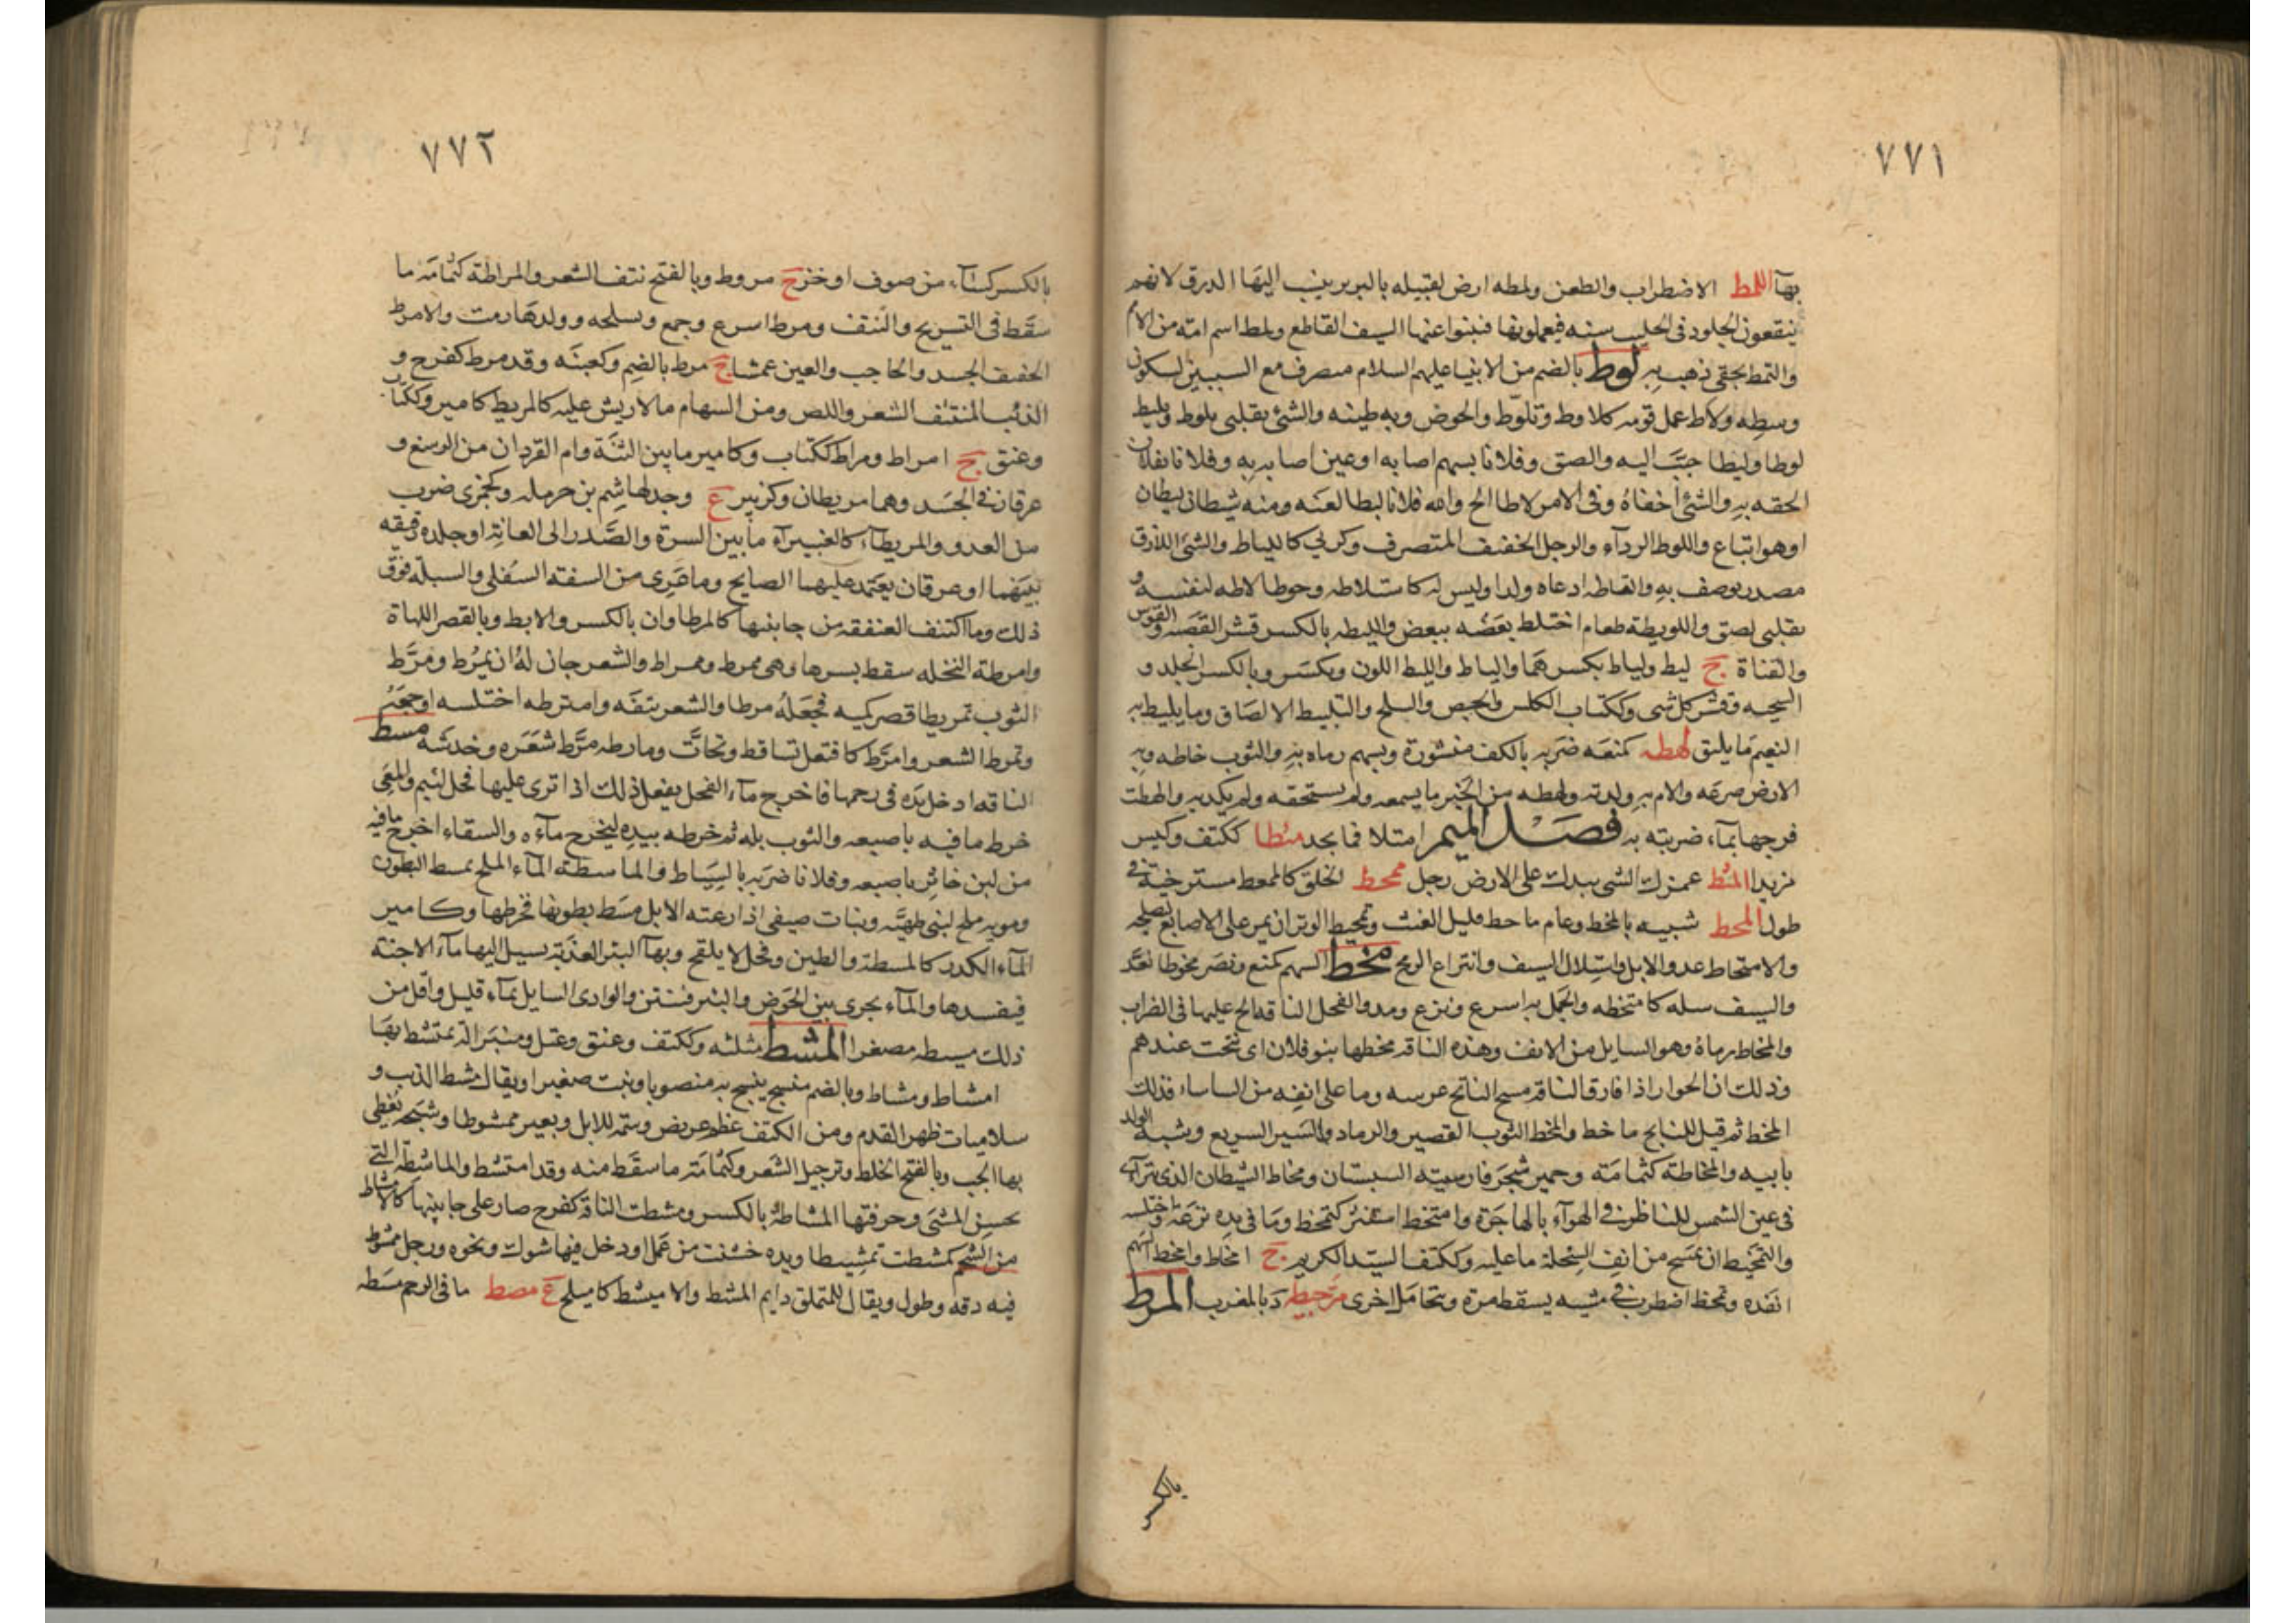 ٧٧١
بهآ اللمط الاضطراب والطعن ولمطه ارض لقبيله بالبربر ينسب اليها الدرق لانهم
ينقعون الجلود فى الحليب سنه فيعملونها فينبوا عنها السيف القاطع ولمط اسم امّه من الامم
والتمط بحقى ذهب به لوط بالضم من الانبيا عليهم السلام منصرف مع السببين لسكون
وسطه ولاط عمل عمل قومه كلاوط وتلوّط والحوض وبه طينه والشئ بقلبى يلوط ويليط
لوطا وليطا حبّب اليه والصق وفلانا بسهم اصابه او عين اصابه به وفلانا بفلان
الحقه به والشئ أخفاهُ وفى الامر لاطا الح والله فلانا ليطا لعنه ومنه شيطان ليطان
او هو اتباع واللوط الردآء والرجل الخفيف المتصرف وكربى كاللياط والشئ اللازق
مصدر يوصف به والتاطه ادعاه ولدا وليس له كاستلاطه وحوطا لاطه لنفسه و
بقلبى لصق واللويطة طعام اختلط بعضه ببعض والليطه بالكسر قشر القصبه والقوس
والقناة ج ليط ولياط بكسرهما والياط والليط اللون ويكسر وبالكسر الجلد و
السجيه وقشر كل شى وككتاب الكلس والجص والسلح والتليط الالصاق وما يليط به
النعيم ما يليق لهطه كمنعه ضربه بالكف منشورة وبسهم رماه به والثوب خاطه وبه
الارض صرعه والام به ولدته ولهطه من الخبر ما يسمعه ولم يستحقه ولم يكذبه والهطت
فرجها بمآء ضربته به فصل الميم امتلا فما يجد مئطا ككتف وكيس
مزيدا المثط غمزك الشى بيدك على الارض رجل ممحط الخلق كالممغط مسترخية فى
طول المحط شبيه بالمخط وعام ماحط قليل الغيث وتمحيط الوتر ان يمر على الاصابع لتصلحه
والامتحاط عدو الابل واستلال السيف وانتزاع الرمح مخط السهم كمنع ونصر مخوطا نفذ
والسيف سله كامتخطه والجمل به اسرع ونزع ومد والفحل الناقة الح عليها فى الضراب
والمخاط رماه وهو السايل من الانف وهذه الناقة مخطها بنو فلان اى نتجت عندهم
وذلك ان الحوار اذا فارق الناقة مسح الناتج عرسه وما على انفه من الساساء فذلك
المخط ثم قيل للناتج ماخط والمخط الثوب القصير والرماد والسير السريع وشبه الولد
بابيه والمخاطة كثمامة وحمير شجر فارسيته السبستان ومخاط الشيطان الذى يترآى
فى عين الشمس للناظر فى الهوآء بالهاجرة وامتخط استنثر كتمخط وما فى يده نزعه واختلسه
والتمخيط ان يمسح من انف السخلة ما عليه وككتف السيّد الكريم ج امخاط وامخط السهم
انفذه وتمخط اضطرب فى مشيه يسقط مرة ويتحامل اخرى مرحيط د بالمغرب المرط
بالكسر
٧٧٢
بالكسر كسآء من صوف او خز ج مروط وبالفتح نتف الشعر والمراطة كثمامة ما
سقط فى التسريح والنتف ومرط اسرع وجمع وبسلحه وولدها رمت والامرط
الخفيف الجسد والحاجب والعين عمشا ج مرط بالضم وكعنبه وقد مرط كفرح و
الذئب المنتتف الشعر واللص ومن السهام ما لا ريش عليه كالمريط كامير وككتاب
وعنق ج امراط ومراط ككتاب وكامير ما بين الثنّة وام القردان من الرسغ و
عرقان فى الجسد وهما مريطان وكزبير ع وجد لهاشم بن حرمله وكجمزى ضرب
من العدو والمريطآء كالغبيرآء ما بين السرّة والصّدر الى العانة او جلده رقيقه
بينهما او عرقان يعتمد عليهما الصايح وما عرى من الشفه السفلى والسبلة فوق
ذلك وما اكتنف العنفقه من جانبيها كالمرطاوان بالكسر والابط وبالقصر اللهاة
وامرطة النخله سقط بسرها وهى ممرط وممراط والشعر حان له ان يمرط ومرّط
الثوب تمريطا قصر كميه فجعله مرطا والشعر نتفه وامترطه اختلسه او جمعه
وتمرط الشعر وامرّط كافتعل تساقط وتحاتّ ومارطه مرّط شعره وخدشه مسط
الناقه ادخل يده فى رحمها فاخرج مآء الفحل يفعل ذلك اذا نزى عليها فحل لئيم والمعى
خرط ما فيه باصبعه والثوب بله ثم خرطه بيده ليخرج مآءه والسقاء اخرج ما فيه
من لبن خاثر باصبعه وفلانا ضربه بالسياط والماسطة المآء الملح يمسط البطون
ومويه ملح لبنى طهيّه ونبات صيفى اذا رعته الابل مسط بطونها فخرطها وكامير
المآء الكدر كالمسطة والطين وفحل لا يلقح وبهآ البئر العذبة يسيل اليها مآء الاجنة
فيفسدها والمآء يجرى بين الحوض والبئر فينتن والوادى السايل بمآء قليل واقل من
ذلك مسيطه مصغرا المشط مثلثه وككتف وعنق وعتل ومنبر آلة يمتشط بها
امشاط ومشاط وبالضم منسج ينسج به منصوبا ونبت صغير او يقال مشط الذيب و
سلاميات ظهر القدم ومن الكتف عظم عريض وسمة للابل وبعير ممشوط وشبحه يغطى
بها الحب وبالفتح الخلط وترجيل الشعر وكثمامة ما سقط منه وقد امتشط والماشطة التى
تحسن المشى وحرفتها المشاطة بالكسر ومشطت الناقة كفرح صار على جانبيها كالامشاط
من الشحم كمشطت تمشيطا ويده خشنت من عمل او دخل فيها شوك ونحوه ورجل ممشوط
فيه دقه وطول ويقال للمتملق دايم المشط والاميشط كاميلح ع مصط ما فى الرحم مسطه